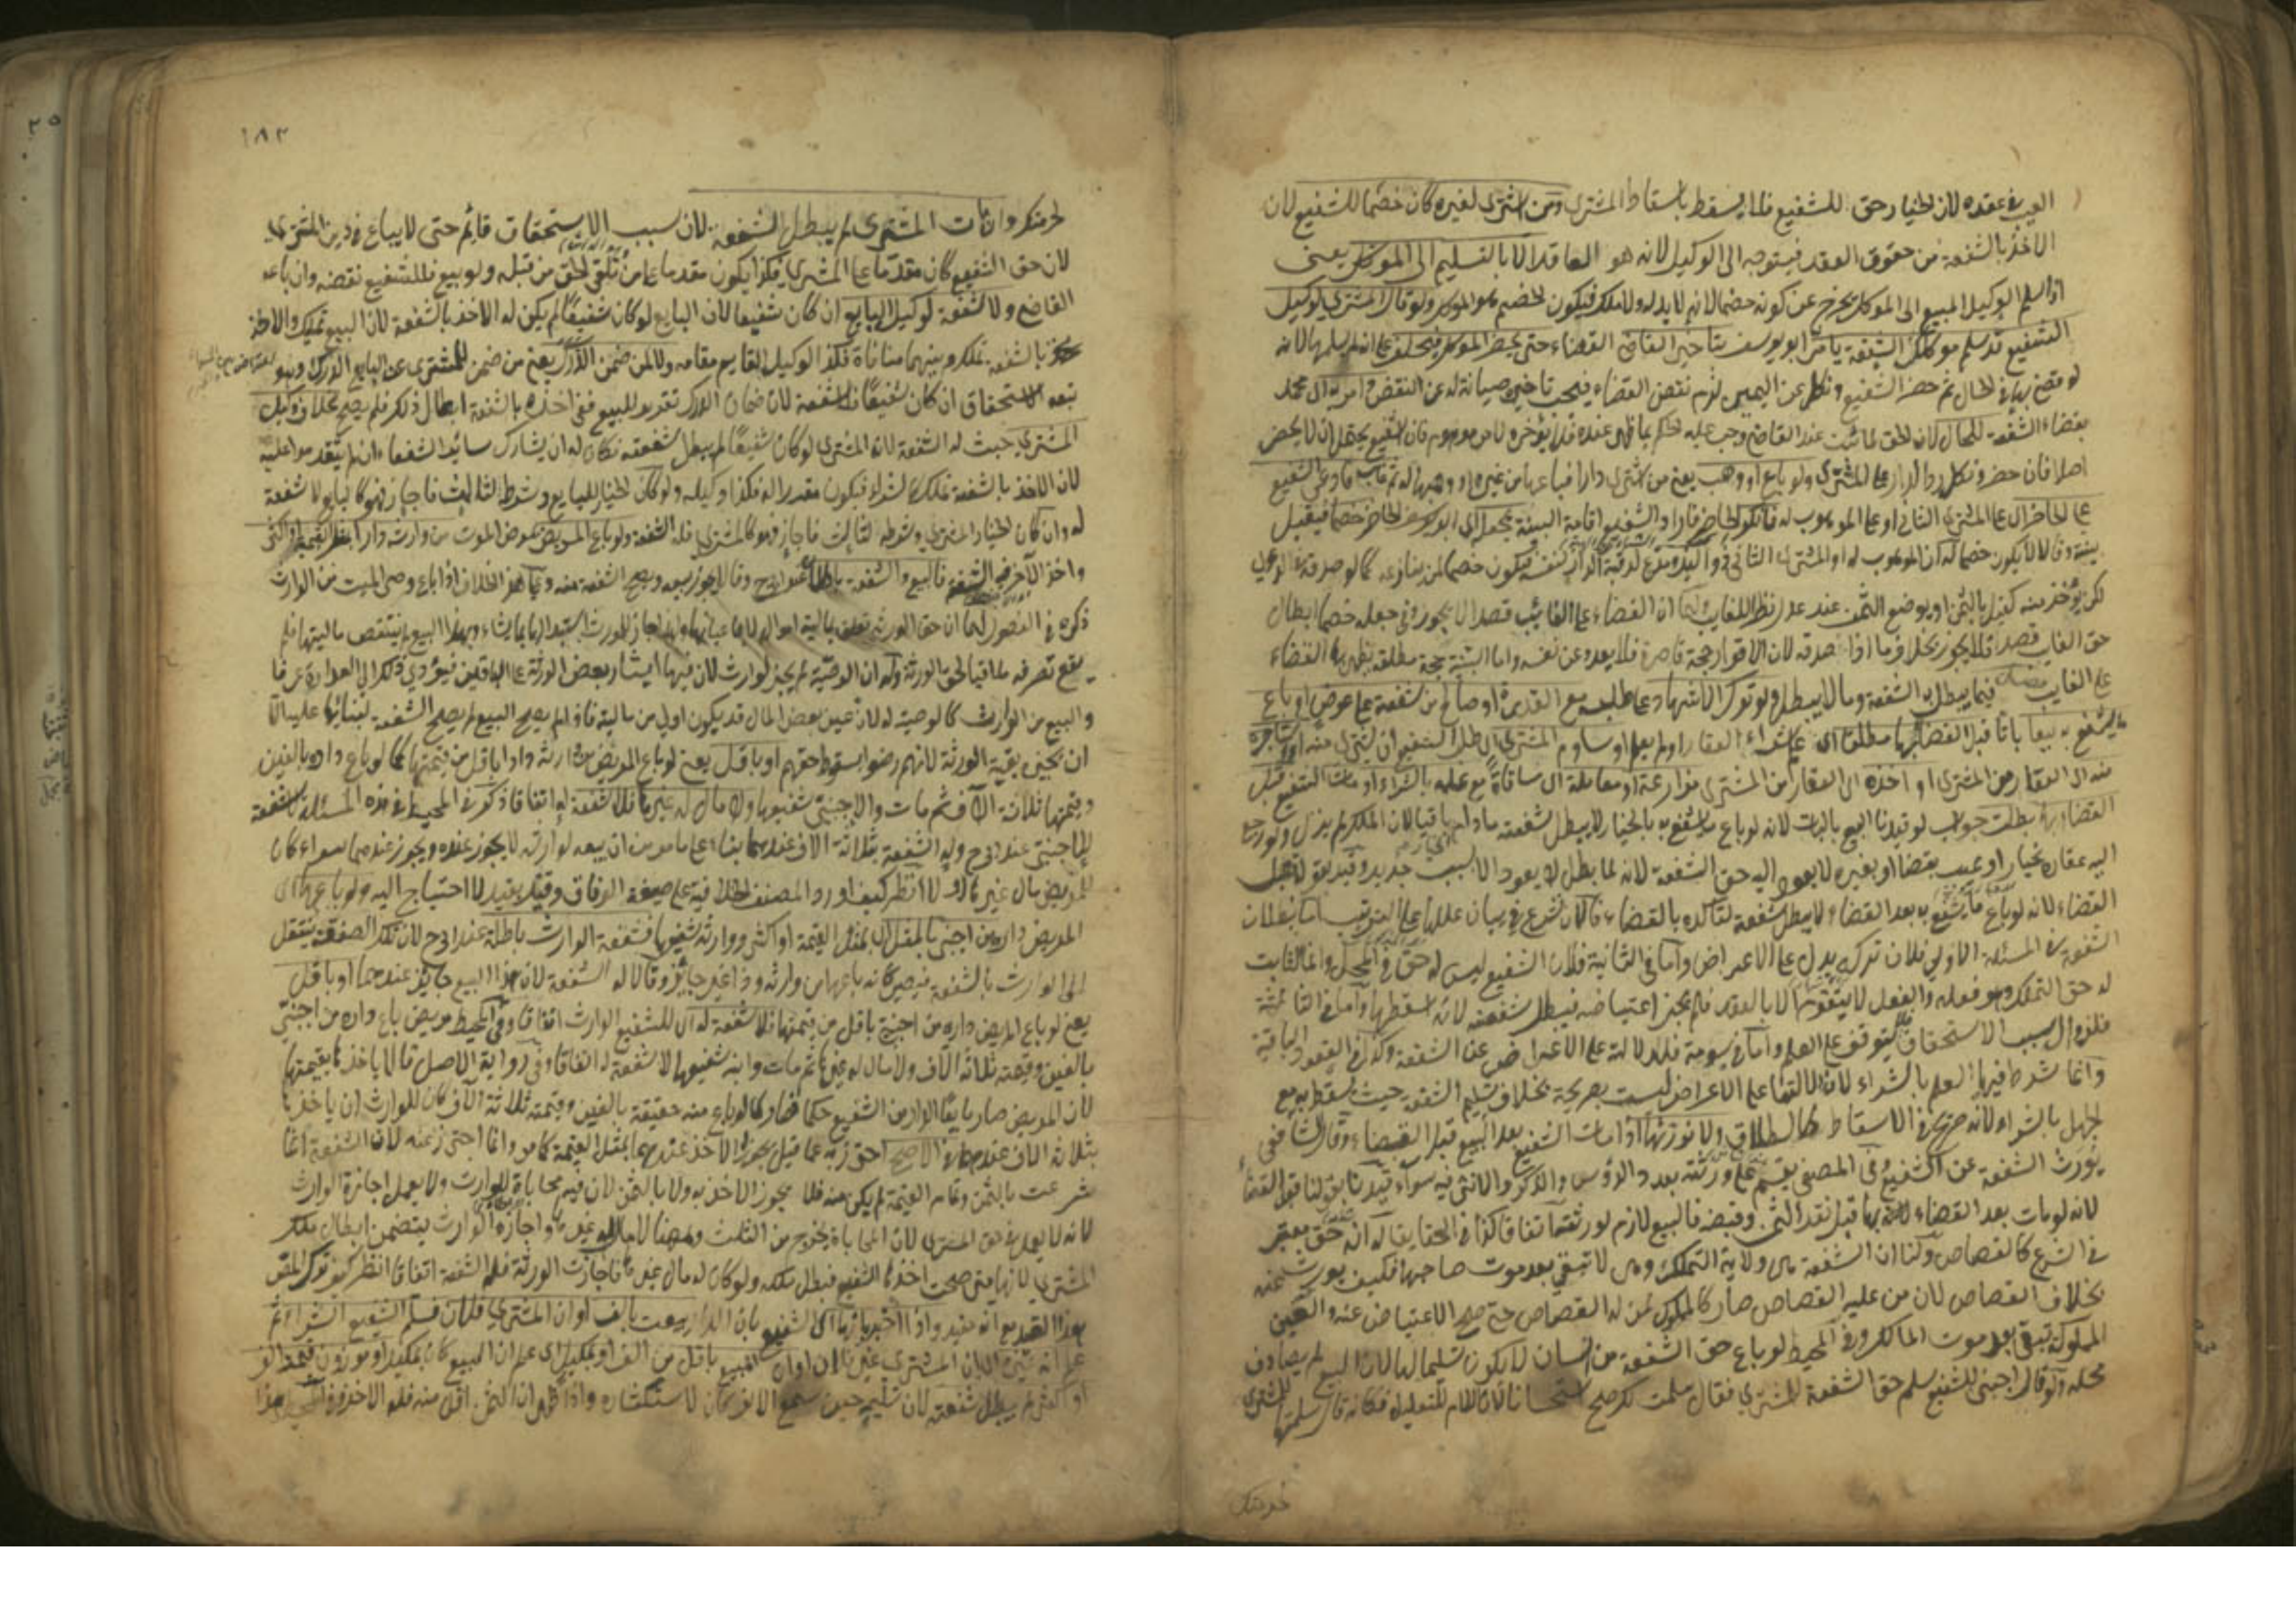 العيب في عقده لان الخيار حق للشفيع فلا يسقط باسقاط المشتري ومن اشترى لغيره كان خصما للشفيع لان
الاخذ بالشفعة من حقوق العقد فيتوجه الى الوكيل لانه هو العاقد الا بالتسليم الى الموكل يعني
اذا سلم الوكيل المبيع الى الموكل يخرج عن كونه خصما لانه لا يد له ولا ملك فيكون الخصم هو الموكل ولو قال المشتري لوكيل
الشفيع قد سلم موكلك الشفعة يأمر ابو يوسف بتأخير القضاء حتى يحضر الموكل فيحلف على انه لم يسلمها لانه
لو قضى بها في الحال ثم حضر الشفيع ونكل عن اليمين لزم نقض القضاء فيجب تأخيره صيانة له عن النقض وامر به اي محمد
بقضاء الشفعة للحال لان الحق لما ثبت عند القاضي وجب عليه الحكم بما ظهر عنده فلا يؤخره لامر موهوم فان الشفيع يحتمل ان لا يحضر
اصلا فان حضر ونكل رد الدار على المشتري ولو باع او وهب يعني من اشترى دارا فباعها من غيره او وهبها له ثم غاب فادعى الشفيع
على الحاضر اي على المشتري الثاني او على الموهوب له فانكر الحاضر واراد الشفيع اقامة البينة يجعل اي ابو يوسف الحاضر خصما فيقبل
بينته وقالا لا يكون خصما له ان الموهوب له او المشتري الثاني ذو اليد ومدع لرقبة الدار لنفسه فيكون خصما لمن ينازعه كما لو صدقه
لكن يؤخذ منه كفيل بالثمن او يوضع الثمن عند عدل نظرا للغائب لهما ان القضاء على الغائب قصدا لا يجوز وفي جعله خصما ابطال
حق الغائب قصدا فلا يجوز بخلاف ما اذا صدقه لان الاقرار حجة قاصرة فلا يعدو عن نفسه واما البينة حجة مطلقة يظهر بها القضاء
على الغائب فصل فيما يبطل به الشفعة وما لا يبطل ولو ترك الاشهاد على طلبه مع القدرة او صالح من شفعته على عوض او باع
ما يشفع به بيعا باتا قبل القضاء بها مطلقا اي علم بشراء العقار او لم يعلم او ساوم المشتري اي طلب الشفيع ان يشتري منه او استأجره
منه اي العقار من المشتري او اخذه اي العقار من المشتري مزارعة او معاملة اي مساقاة مع علمه بالشراء او مات الشفيع قبل
القضاء بها بطلت جواب لو قيدنا البيع بالبات لانه لو باع ما يشفع به بالخيار لا يبطل شفعته ما دام باقيا لان الملك لم يزل ولو رجع
اليه عقاره بخيار او عيب بقضاء او بغيره لا يعود اليه حق الشفعة لانه لما بطل لا يعود الا بسبب جديد وقيد بقوله قبل
القضاء لانه لو باع ما يشفع به بعد القضاء لا يبطل شفعته لتأكده بالقضاء فالان نشرع في بيان عللها على الترتيب اما بطلان
الشفعة في المسئلة الاولى فلان تركه يدل على الاعراض واما في الثانية فلان الشفيع ليس له حق في المحل وانما الثابت
له حق التملك وهو فعله والفعل لا يتقوم الا بالعقد فلم يجز اعتياضه فيبطل شفعته لانه اسقطها واما في الثالثة
فلزوال سبب الاستحقاق فلا يتوقف على العلم واما في سومه فلدلالته على الاعراض عن الشفعة وكذا في العقود الباقية
وانما شرط فيها العلم بالشراء لان دلالتها على الاعراض ليست بصريحة بخلاف تسليم الشفعة حيث يسقط به مع
الجهل بالشراء لانه صريح في الاسقاط كالطلاق ولا نورثها اذا مات الشفيع بعد البيع قبل القضاء وقال الشافعي
يورث الشفعة عن الشفيع وفي المصفى يقسم على ورثته بعدد الرؤس والذكر والانثى فيه سواء قيدنا بقولنا قبل القضاء
لانه لو مات بعد القضاء بها قبل نقد الثمن وقبضه فالبيع لازم لورثته اتفاقا كذا في الحقايق له انه حق معتبر
في الشرع كالقصاص ولنا ان الشفعة هي ولاية التملك وهي لا تبقى بعد موت صاحبها فكيف يورث عنه
بخلاف القصاص لان من عليه القصاص صار كالمملوك لمن له القصاص حتى صح الاعتياض عنه والعين
المملوكة تبقى بعد موت المالك وفي المحيط لو باع حق الشفعة من انسان لا يكون تسليما لها لان البيع لم يصادف
محله ولو قال اجنبي للشفيع سلم حق الشفعة للمشتري فقال سلمت لك صح استحسانا لان اللام للتعليل فكانه قال سلمتها للمشتري
لحرمتك
١٨٢
لحرمتك وان مات المشتري لم يبطل الشفعة لان سبب الاستحقاق قائم حتى لا يباع في دين المشتري
لان حق الشفيع كان مقدما على المشتري فكذا يكون مقدما على من تلقى الحق من قبله ولو بيع فللشفيع نقضه وان باعه
القاضي ولا شفعة لوكيل البايع ان كان شفيعا لان البايع لو كان شفيعا لم يكن له الاخذ بالشفعة لان البيع تمليك والاخذ
بالشفعة تملك وبينهما منافاة فكذا الوكيل القايم مقامه ولا لمن ضمن الدرك يعني من ضمن للمشتري عن البايع الدرك وهو
تبعة الاستحقاق ان كان شفيعا لا شفعة لان ضمان الدرك تقرير للبيع ففي اخذه بالشفعة ابطال ذلك فلم يصح بخلاف وكيل
المشتري حيث له الشفعة لان المشتري لو كان شفيعا لم يبطل شفعته فكان له ان يشارك سائر الشفعاء ان لم يتقدموا عليه
لان الاخذ بالشفعة تملك كالشراء فيكون مقررا له فكذا وكيله ولو كان الخيار للبايع وشرط لثالث فاجاز فهو كالبايع لا شفعة
له وان كان الخيار للمشتري وشرطه لثالث فاجاز فهو كالمشتري فله الشفعة ولو باع المريض مرض الموت من وارثه دارا بمثل القيمة او اكثر
واخذ الآخر فيه الشفعة فالبيع والشفعة باطلان عند ابي ح وقالا يجوز بيعه ويصح الشفعة منه وعلى هذا الخلاف اذا باع وصي الميت من الوارث
ذكره في الفصول لهما ان حق الورثة تعلق بمالية امواله لا باعيانها ولهذا جاز للمورث استبدالها بما يشاء وبهذا البيع لم ينتقص ماليتها فلم
يقع تصرفه ملاقيا لحق الورثة وله ان الوصية لم يجز لوارث لان فيها ايثار بعض الورثة على الباقين فيؤدي ذلك الى العداوة عرفا
والبيع من الوارث كالوصية له لان عين بعض المال قد يكون اولى من مالية فاذا لم يصح البيع لم يصح الشفعة لبنائها عليه الا
ان يجيز بقية الورثة لانهم رضوا بسقوط حقهم او باقل يعني لو باع المريض من وارثه دارا باقل من قيمتها كما لو باع داره بالفين
وقيمتها ثلاثة الآف ثم مات والاجنبي شفيعها ولا مال له غيرها فلا شفعة له اتفاقا ذكر في المحيط في هذه المسئلة لا شفعة
للاجنبي عند ابي ح وله الشفعة بثلاثة الاف عندهما بناء على ما مر من ان بيعه لوارثه لا يجوز عنده ويجوز عندهما سواء كان
للمريض مال غيرها او لا انظر كيف اورد المصنف الخلافية على صيغة الوفاق وقيد بقيد لا احتياج اليه ولو باعها اي
المريض داره من اجنبي بالمثل اي بمثل القيمة او اكثر ووارثه شفيعها فشفعة الوارث باطلة عند ابي ح لان تلك الصفقة ينتقل
الى الوارث بالشفعة فيصير كانه باعها من وارثه وذا غير جائز وقالا له الشفعة لان هذا البيع جايز عندهما او باقل
يعني لو باع المريض داره من اجنبي باقل من قيمتها فلا شفعة له اي للشفيع الوارث اتفاقا وفي المحيط مريض باع داره من اجنبي
بالفين وقيمته ثلاثة الآف ولا مال له غيرها ثم مات وابنه شفيعها لا شفعة له اتفاقا وفي رواية الاصل قالا ياخذها بقيمتها
لان المريض صار بايعا الدار من الشفيع حكما فصار كما لو باع منه حقيقة بالفين وقيمته ثلاثة الآف كان للوارث ان ياخذها
بثلاثة الاف عندهما في الاصح احترز به عما قيل يجوز الاخذ عندهما بمثل القيمة كما مر وانما احترز عنه لان الشفعة انما
شرعت بالثمن وتمام القيمة لم يكن منه فلا يجوز الاخذ به ولا بالثمن لان فيه محاباة للوارث ولا يعمل اجازة الوارث
لانه لا يعمل في حق المشتري لان المحاباة يخرج من الثلث وههنا لا مال له غيرها واجازة الوارث يتضمن ابطال ملك
المشتري لانها متى صحت اخذها الشفيع فبطل ملكه ولو كان له مال غيرها فاجازت الورثة فله الشفعة اتفاقا انظر كيف ترك المص
هذا القيد مع انه مفيد واذا اخبر بها اي الشفيع بان الدار بيعت بالف او ان المشتري فلان فسلم الشفيع الشراء ثم
علم انه غيره اي ان المشتري غير فلان او ان المبيع باقل من الف او بمكيل اي علم ان البيع كان بمكيل او موزون قيمته الف
او اكثر لم يبطل شفعته لان تسليمه حين سمع الالف كان لاستكثاره واذا ظهر ان الثمن اقل منه فله الاخذ وفي المحيط هذا